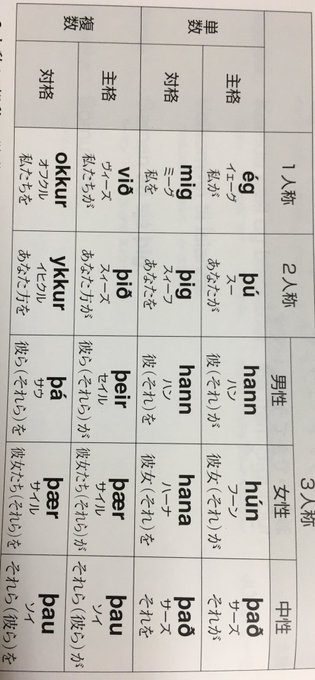 1人称 2人称 3人称
男性 女性 中性
単数
主格
ég þú hann hún það
イェーグ スー ハン フーン サーズ
私が あなたが 彼(それ)が 彼女(それ)が それが
対格
mig þig hann hana það
ミーグ ハン ハーナ サーズ
私を あなたを 彼(それ)を 彼女(それ)を それを
複数
主格
við þið þeir þær þau
ヴィーズ スィーズ セイル サイル ソイ
私たちが あなた方が 彼ら(それら)が 彼女たち(それら)が それら(彼ら)が
対格
okkur ykkur þá þær þau
オフクル イヒクル サウ サイル ソイ
私たちを あなた方を 彼ら(それら)を 彼女たち(それら)を それら(彼ら)を